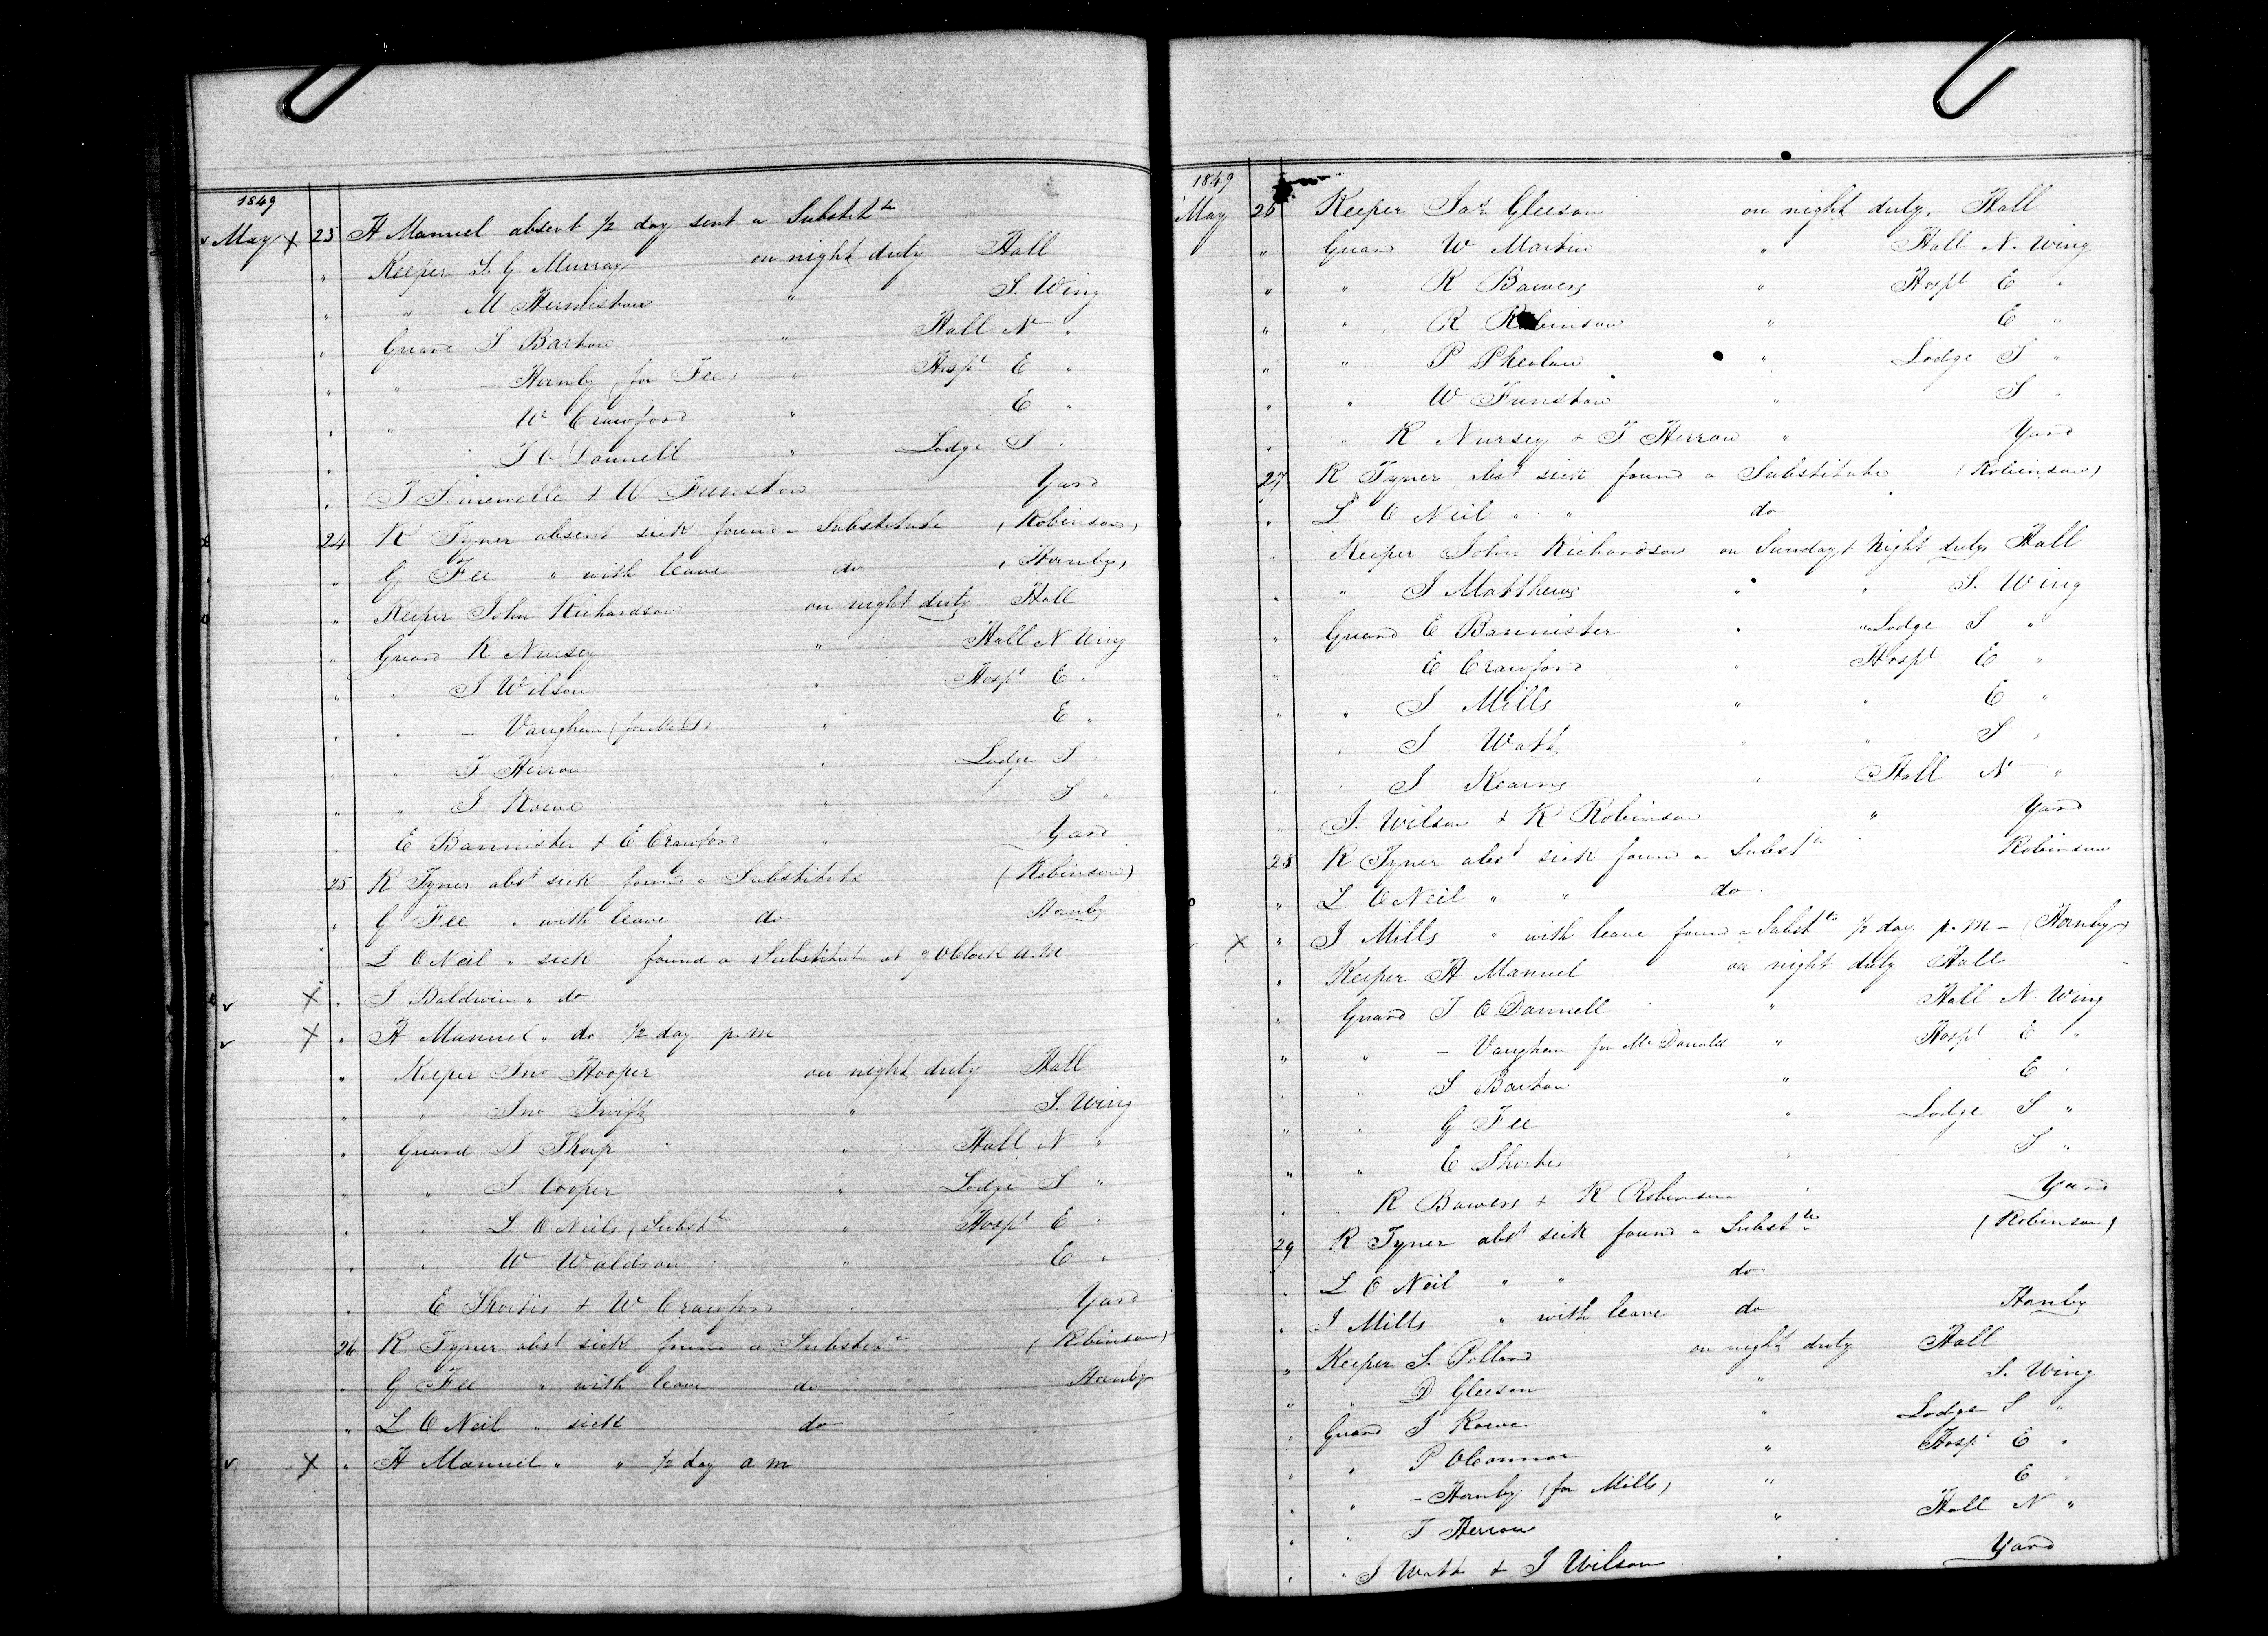 1849
May 23 H Manuel absent 1/2 day sent a Substite
" Keeper S. G Murray on night duty Hall
" " M Hermiston " S. Wing
" Guard S Barton " Hall N "
" " — Hornby (for Fee) " Hospl E "
" " W Crawford " E "
" " T O Donnell " Lodge S "
" T Sinewille & W Funston Yard
24 R Tyner absent sick found a Substitute (Robinson)
" G Fee " with leave do (Hornby)
" Keeper John Richardson on night duty Hall
" Guard R Nursey " Hall N Wing
" " J Wilson " Hospl E "
" " — Vaughan (for McD) " E "
" " T Herron " Lodge S "
" " J Rowe " S "
" E Bannister & E Crawford " Yard
25 R Tyner abst sick found a Substitute (Robinson)
" G Fee " with leave do Hornby
" L O Neil " sick found a Substitute at 9 OClock a.m
X " J Baldwin " do
X " H Manuel " do 1/2 day p.m
" Keeper Jno Hooper on night duty Hall
" " Jno Swift " S. Wing
" Guard S Thorp " Hall N "
" " J Cooper " Lodge S "
" " L O Neils (Substte " Hospl E "
" " W Waldron " E "
" E Shortis & W Crawford " Yard
26 R Tyner abst sick found a Substete (Robinson)
" G Fee " with leave do Hornby
" L O Neil " sick do
X " H Manuel " " 1/2 day a m
1849
May 26 Keeper Jas Gleeson on night duty, Hall
" Guard W Martin " Hall N. Wing
" " R Bowers " Hospl E "
" " R Robinson " E "
" " P Phealan " Lodge S "
" " W Funston " S "
" " R Nursey & T Herron " Yard
27 R Tyner abst sick found a Substitute (Robinson)
" L O Neil " " do
" Keeper John Richardson on Sunday & Night duty Hall
" " J Matthews " " S. Wing
" Guard E Bannister " " Lodge S "
" E Crawford " Hospl E "
" " J Mills " " E "
" " J Watt " " S "
" " J Kearns " Hall N "
" J. Wilson & R Robinson " Yard
28 R Tyner abst sick found a Substte Robinson
" L O Neil " " do
X " J Mills " with leave found a Substte 1/2 day p.m — (Hornby)
" Keeper H Manuel on night duty Hall
" Guard T O Donnell " Hall N. Wing
" " — Vaughan for Mc Donald " Hospl E "
" " S Barton " E "
" " G Fee " Lodge S "
" " E Shortis " S "
" " R Bowers & R Robinson " Yard
29 R Tyner abst sick found a Substte (Robinson)
" L O Neil " " do
" J Mills " with leave do Hornby
" Keeper S. Pollard on night duty Hall
" " D Gleeson " S. Wing
" Guard J Rowe " Lodge S "
" " P OConnor " Hospl E "
" " — Hornby (for Mills) " E "
" " T Herron " Hall N "
" " J Watt & J Wilson " Yard